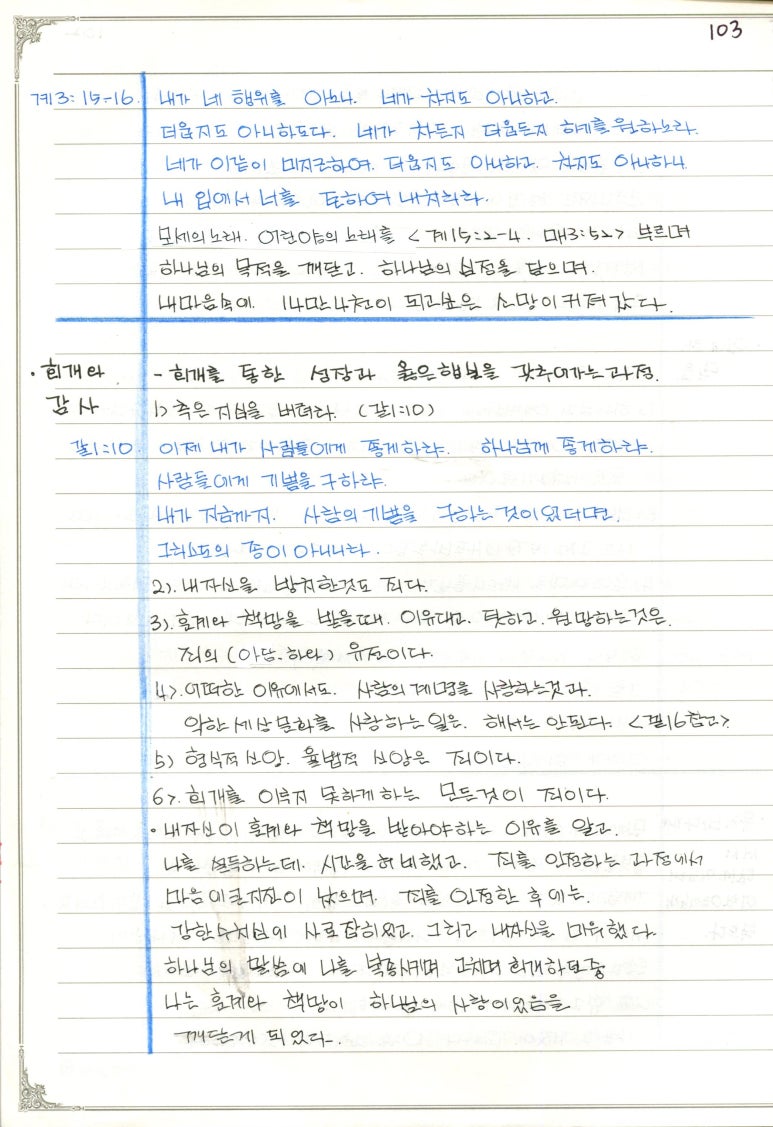 103
계3:15-16. 내가 네 행위를 아노니. 네가 차지도 아니하고.
더웁지도 아니하도다. 네가 차든지 더웁든지 하기를 원하노라.
네가 이같이 미지근하여. 더웁지도 아니하고. 차지도 아니하니
내 입에서 너를 토하여 내치리라.
모세의 노래. 어린양의 노래를 <계15:2-4. 매3:52> 부르며
하나님의 목적을 깨닫고. 하나님의 심정을 닮으며.
내마음속에 14만4천이 되고싶은 소망이 커져갔다.
· 회개와 - 회개를 통한 성장과 옳은행실을 갖추어가는 과정.
감사 1) 죽은 지심을 버려라. (갈1:10)
갈1:10. 이제 내가 사람들에게 좋게하랴. 하나님께 좋게하랴.
사람들에게 기쁨을 구하랴.
내가 지금까지. 사람의 기쁨을 구하는 것이 있더면.
그리스도의 종이 아니니라.
2). 내자신을 방치한것도 죄다.
3). 훈계와 책망을 받을때. 이유대고. 탓하고. 원망하는것은.
죄의 (아담.하와) 유전이다.
4). 어떠한 이유에서도. 사람의 계명을 사랑하는것과.
악한 세상문화를 사랑하는 일은. 해서는 안된다. <겔16참고>
5) 형식적 신앙. 율법적 신앙은 죄이다.
6). 회개를 이루지 못하게 하는 모든것이 죄이다.
· 내자신이 훈계와 책망을 받아야하는 이유를 알고.
나를 설득하는데. 시간을 허비했고. 죄를 인정하는 과정에서
마음에 큰지진이 났으며. 죄를 인정한 후에는.
강한수치심에 사로잡히었고. 그리고 내자신을 미워했다.
하나님의 말씀에 나를 복종시키며 고치며 회개하던중
나는 훈계와 책망이 하나님의 사랑이었음을
깨닫게 되었다.